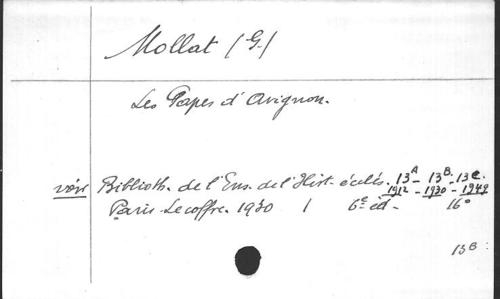 Mollat (G.)
Les Papes d'Avignon.
voir Biblioth. de l'Ens. de l'Hist. écclés. 13A - 13B - 13C.
1912 - 1930 - 1949
Paris - Lecoffre. 1930 1 6e éd - 16°
13B.